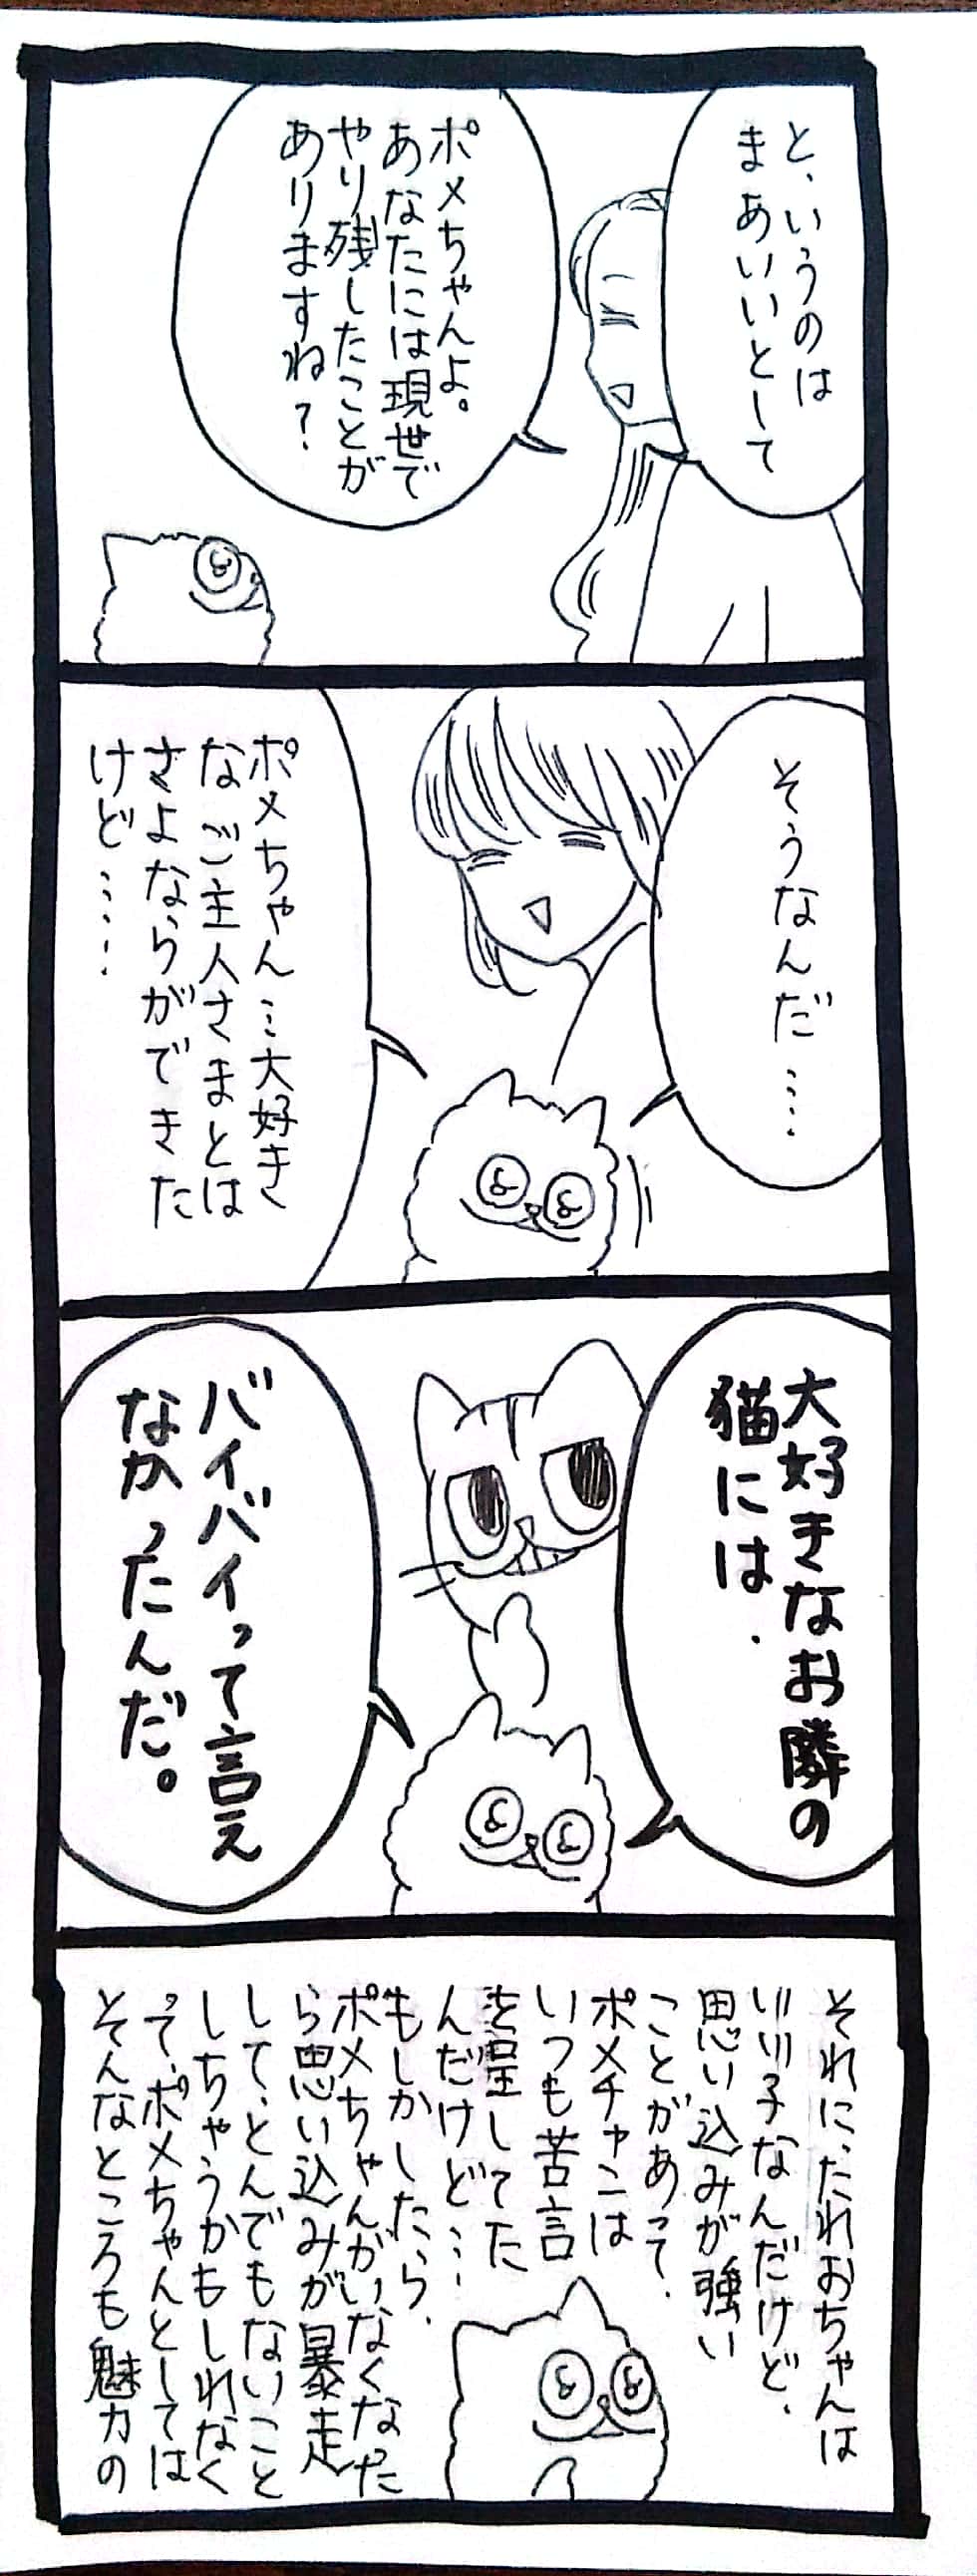 と、いうのは
まあいいとして
ポメちゃんよ。
あなたには現世で
やり残したことが
ありますね？
そうなんだ……
ポメちゃん…大好き
なご主人さまとは
さよならができた
けど……
大好きなお隣の
猫には、
バイバイって言え
なかったんだ。
それに、たれおちゃんは
いい子なんだけど、
思い込みが強い
ことがあって、
ポメチャンは
いつも苦言
を呈してた
んだけど…
もしかしたら、
ポメちゃんがいなくなった
ら思い込みが暴走
して、とんでもないこと
しちゃうかもしれなく
って、ポメちゃんとしては
そんなところも魅力の